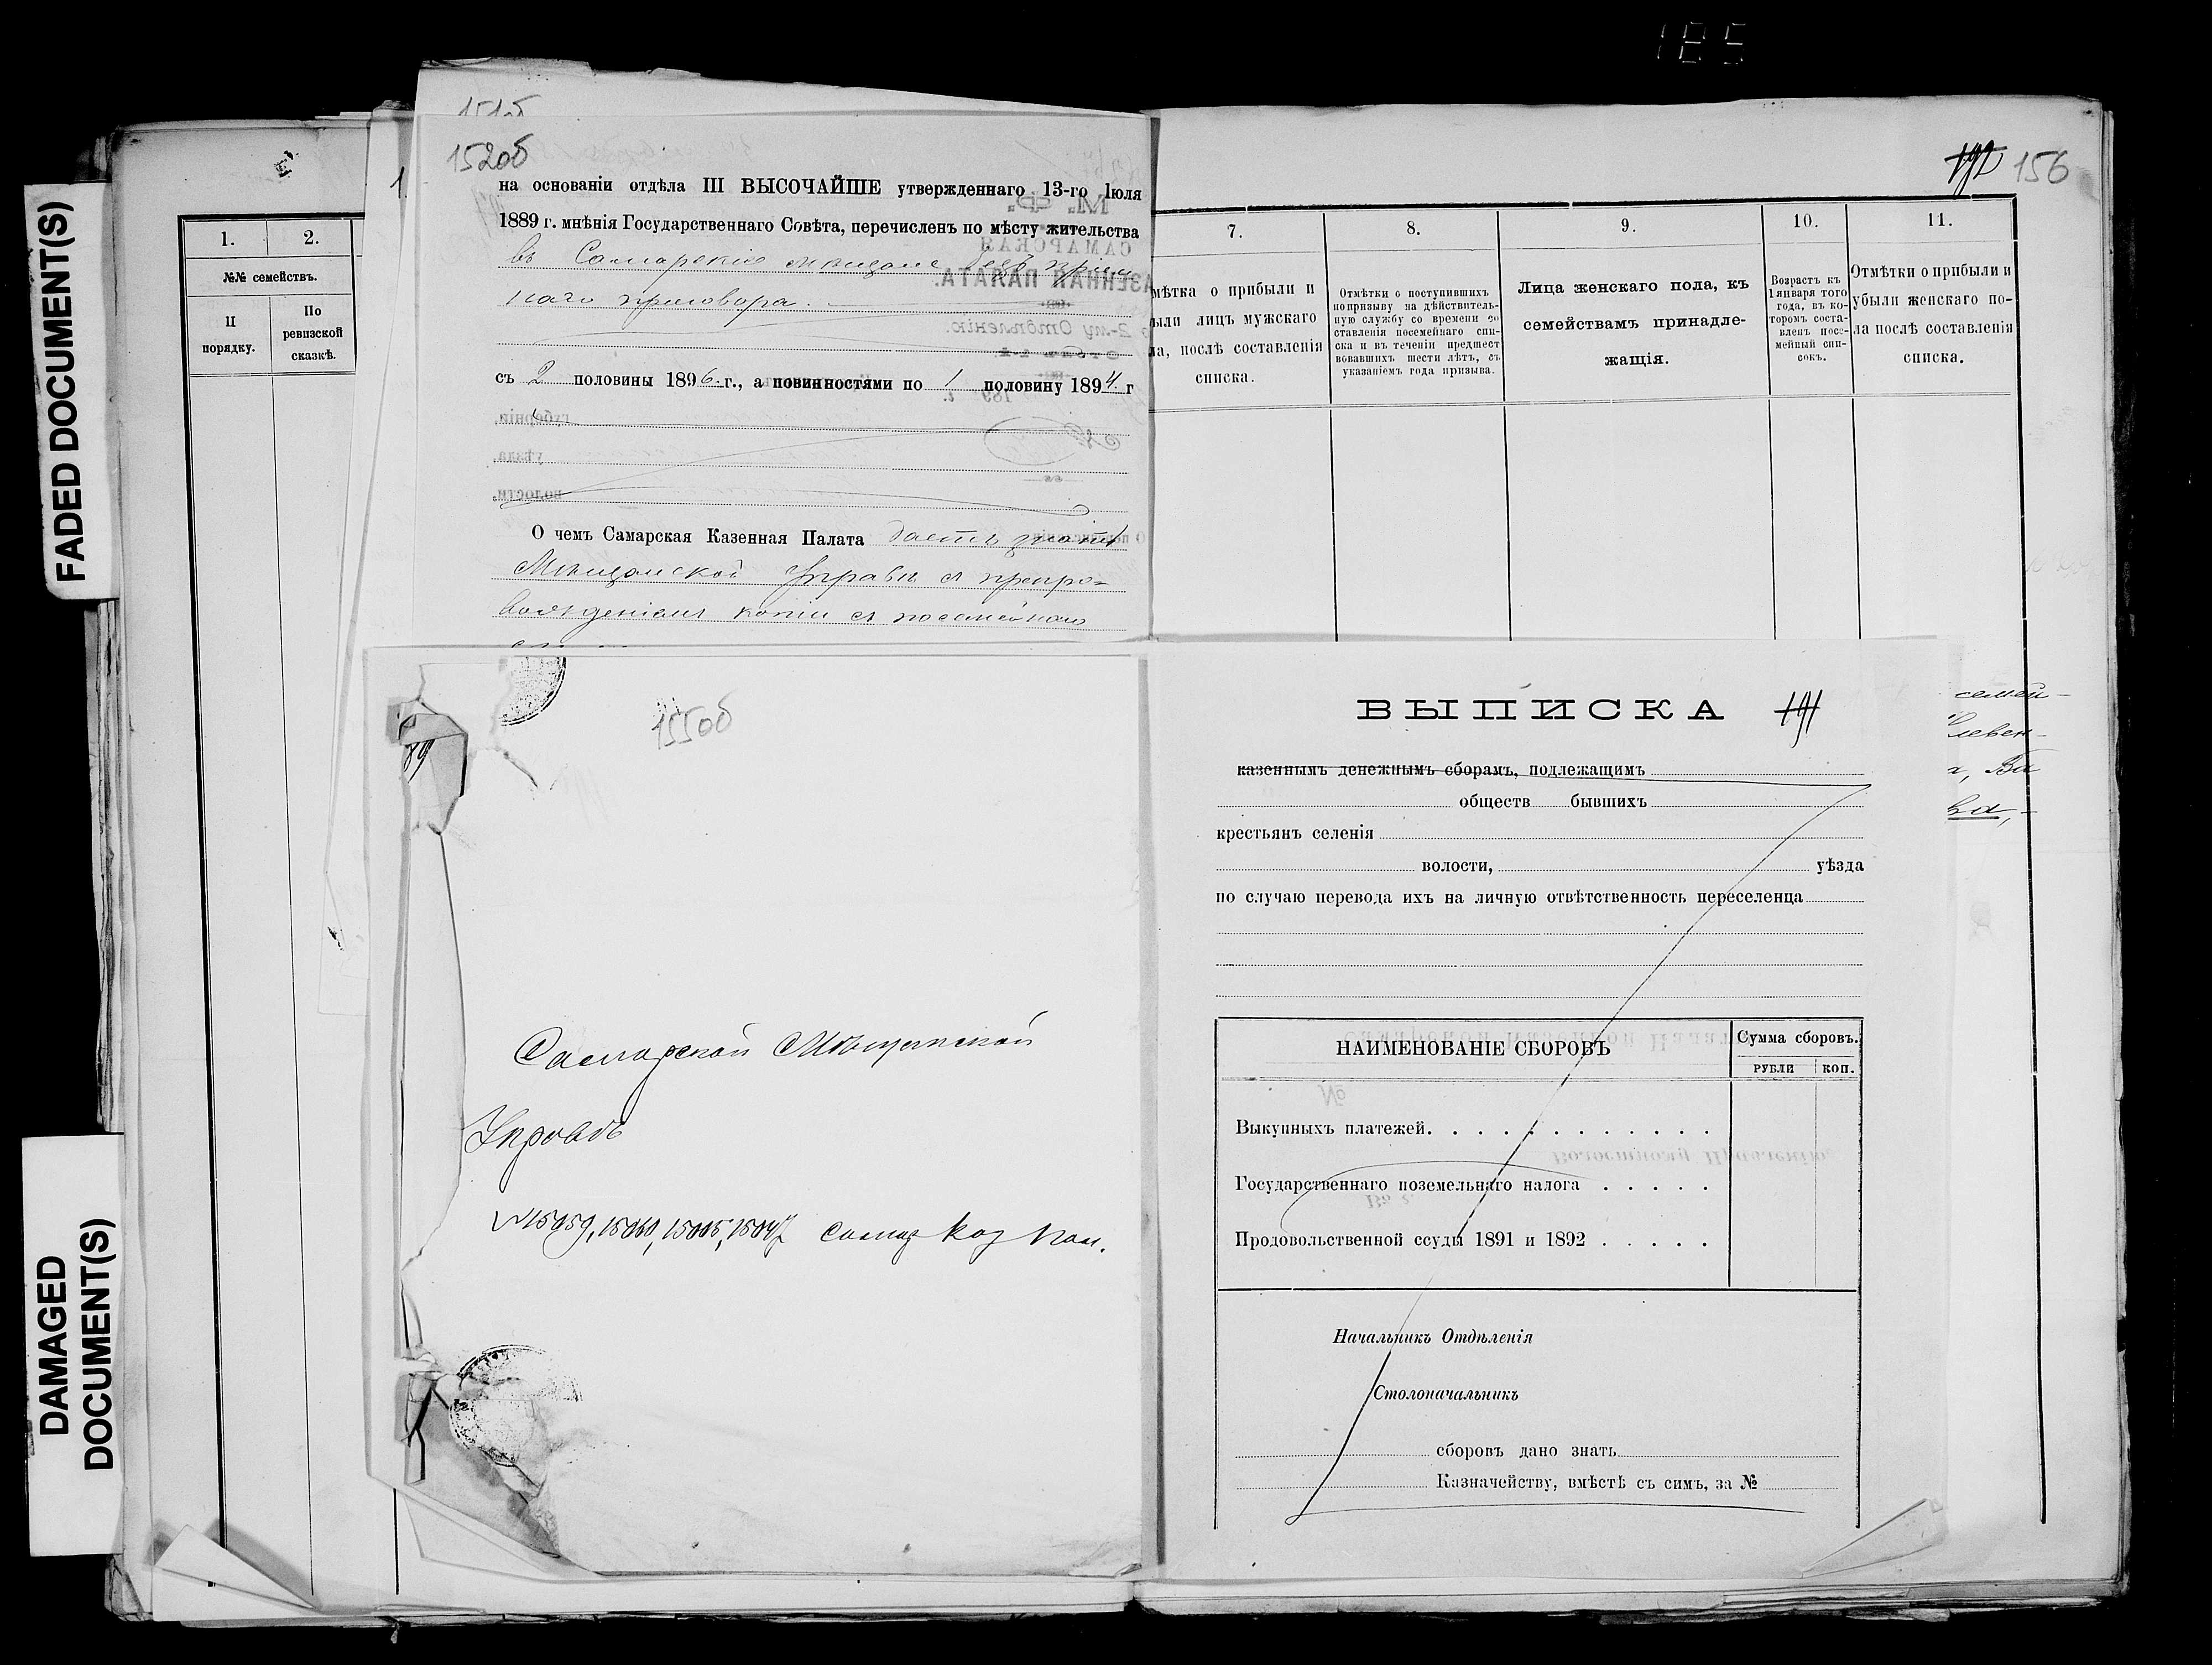 185
FADED DOCUMENT(S)
DAMAGED
DOCUMENT(S)
151об
152об
на основаніи отдѣла III ВЫСОЧАЙШЕ утвержденнаго 13-го Іюля
1889 г. мнѣнія Государственнаго Совѣта, перечисленъ по мѣсту жительства
въ Самарскіе мѣщане безъ пріем
наго приговора.
съ 2 половины 1896 г., а повинностями по 1 половину 1894 г
О чемъ Самарская Казенная Палата даетъ знать
Мѣщанской Управѣ съ препро=
вожденіемъ копіи съ посемейнаго
М. Ф.
САМАРСКАЯ
КАЗЕННАЯ ПАЛАТА.
2-му Отдѣленію.
189 г.
губерніи,
уѣзда,
волости,
156
1.
2.
№№ семействъ.
II
порядку.
По
ревизской
сказкѣ.
7.
мѣтка о прибыли и
ыли лицъ мужскаго
ла, послѣ составленія
списка.
8.
Отмѣтки о поступившихъ
по призыву на дѣйствитель-
ную службу со времени со
ставленія посемейнаго спи-
ска и въ теченіи предшест
вовавшихъ шести лѣтъ, съ
указаніемъ года призыва.
9.
Лица женскаго пола, къ
семействамъ принадле-
жащія.
10.
Возрастъ къ
1 января того
года, въ ко-
торомъ соста-
вленъ посе-
мейный спи-
сокъ.
11.
Отмѣтки о прибыли и
убыли женскаго по-
ла послѣ составленія
списка.
семей-
155об
89
Самарской Мѣщанской
Управѣ
№ 15059, 15060, 15005, 15047 Самар Каз Пал.
ВЫПИСКА 191
казеннымъ денежнымъ сборамъ, подлежащимъ
обществ бывшихъ
крестьянъ селенія
волости, уѣзда
по случаю перевода ихъ на личную отвѣтственность переселенца
НАИМЕНОВАНІЕ СБОРОВЪ
Сумма сборовъ.
РУБЛИ
КОП.
Выкупныхъ платежей. . . . . . . . . . . . .
Государственнаго поземельнаго налога . . . . .
Продовольственной ссуды 1891 и 1892 . . . . .
Начальникъ Отдѣленія
Столоначальникъ
сборовъ дано знать
Казначейству, вмѣстѣ съ симъ, за №